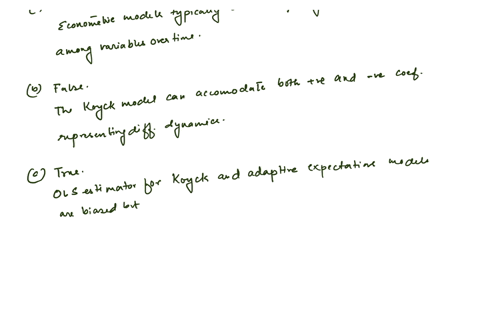 Econometric models typically
among variables over time.
(b) False.
The Koyck model can accomodate both +ve and -ve coef.
representing diff. dynamics.
(c) True.
OLS estimator for Koyck and adaptive expectations models
are biased but